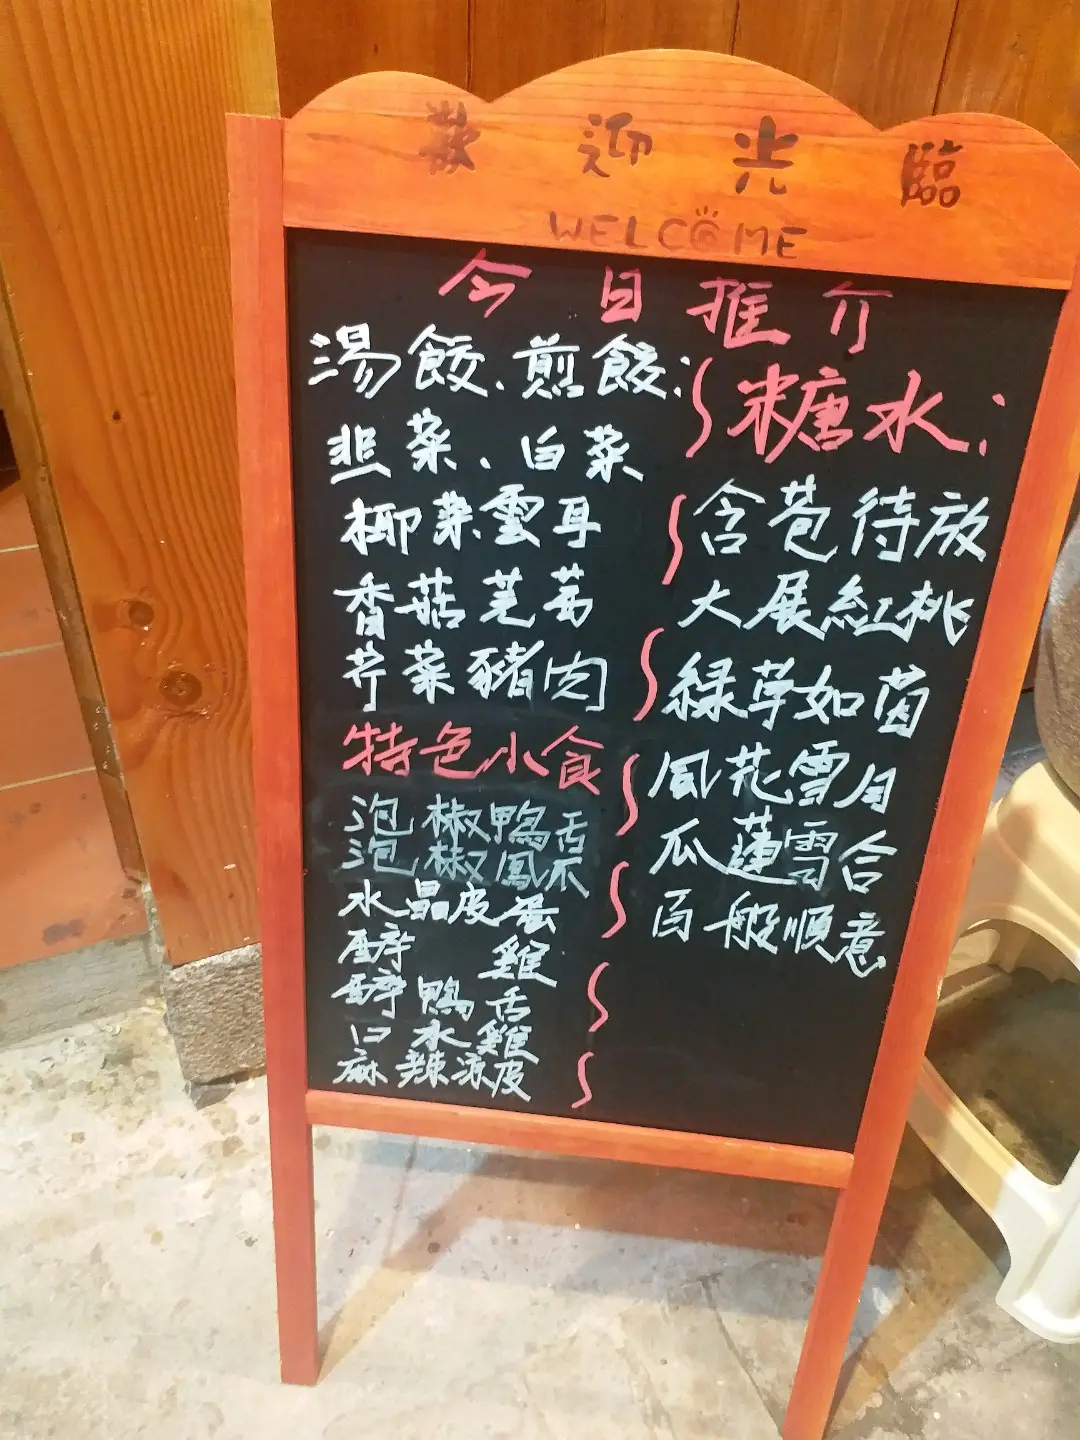 歡迎光臨
WELCOME
今日推介
湯餃、煎餃:
韭菜、白菜
椰菜雲耳
香菇芫茜
芹菜豬肉
特色小食
泡椒鴨舌
泡椒鳳爪
水晶皮蛋
醉雞
醉鴨舌
口水雞
麻辣凉皮
糖水:
含苞待放
大展紅桃
綠草如茵
風花雪月
瓜蓮雪合
百般順意